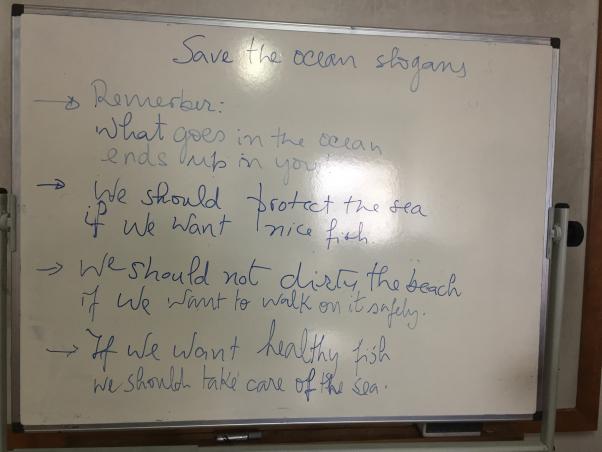 Save the ocean slogans
→ Remember:
What goes in the ocean
ends up in you!
→ We should protect the sea
if we want nice fish.
→ We should not dirty the beach
if we want to walk on it safely.
→ If we want healthy fish
we should take care of the sea.